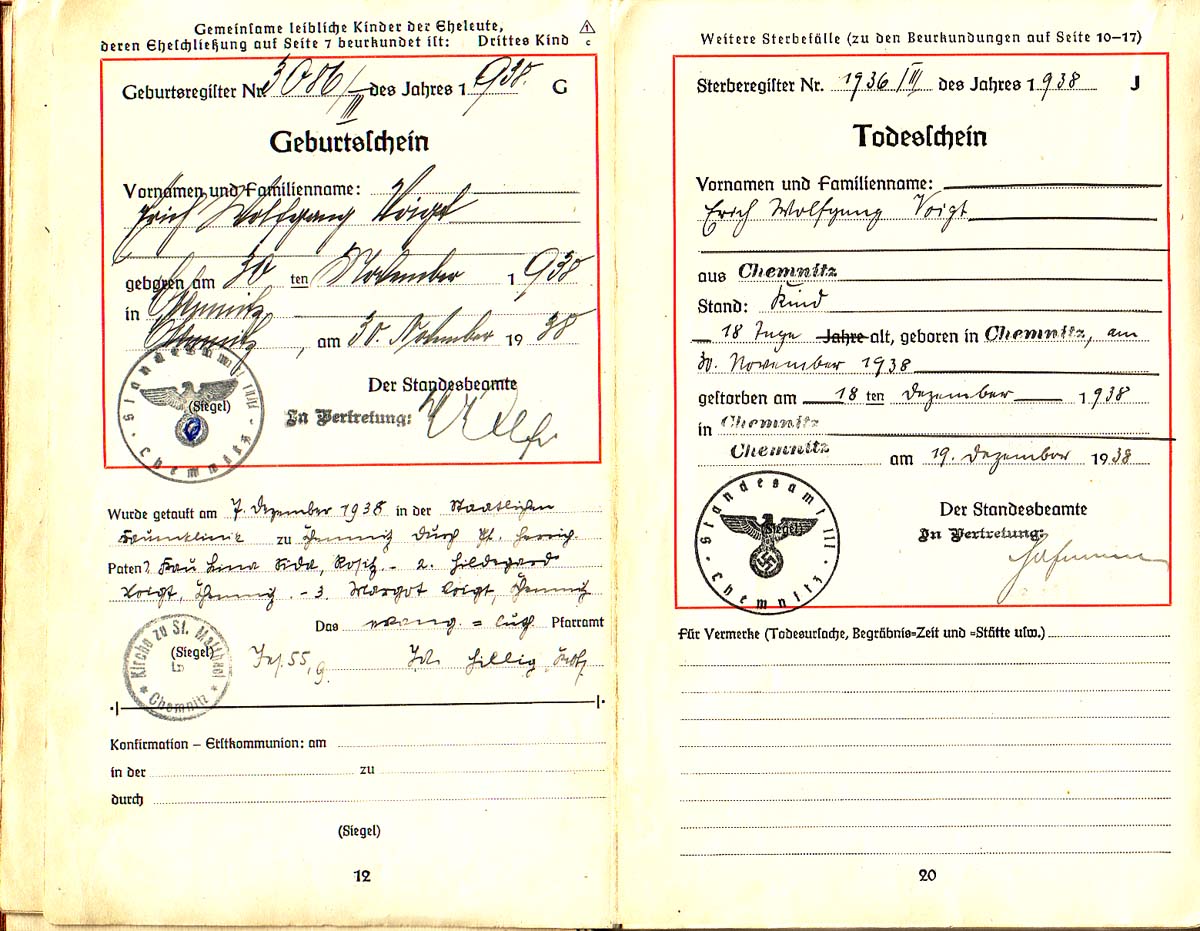 Gemeinsame leibliche Kinder der Eheleute,
deren Eheschließung auf Seite 7 beurkundet ist: Drittes Kind
1
c
Geburtsregister Nr. 3086/III des Jahres 1938. G
Geburtsschein
Vornamen und Familienname:
Erich Wolfgang Voigt
geboren am 30 ten November 1938
in Chemnitz
Chemnitz, am 30. November 1938
Der Standesbeamte
(Siegel)
In Vertretung:
Standesamt III Chemnitz
Wurde getauft am 7. Dezember 1938 in der Staatlichen
Frauenklinik zu Chemnitz durch Pf.
Paten? Frau Lina, Rositz. - 2. Hildegard
Voigt, Chemnitz. - 3. Margot Voigt, Chemnitz
Das evang. = luth Pfarramt
Kirche zu St. Matthäi
(Siegel)
Chemnitz
Hillig
Konfirmation – Erstkommunion: am
in der zu
durch
(Siegel)
12
Weitere Sterbefälle (zu den Beurkundungen auf Seite 10–17)
Sterberegister Nr. 1936/III des Jahres 1938 J
Todesschein
Vornamen und Familienname:
Erich Wolfgang Voigt
aus Chemnitz
Stand: Kind
18 Tage Jahre alt, geboren in Chemnitz, am
30. November 1938
gestorben am 18 ten Dezember 1938
in Chemnitz
Chemnitz am 19. Dezember 1938
Der Standesbeamte
(Siegel)
In Vertretung:
Standesamt III Chemnitz
Für Vermerke (Todesursache, Begräbnis=Zeit und =Stätte usw.)
20